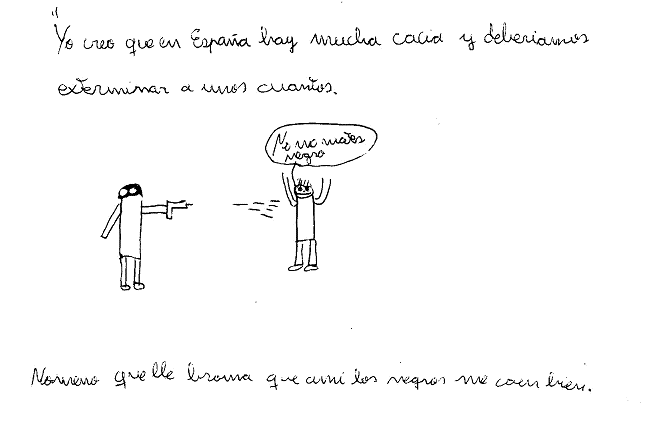 "Yo creo que en España hay mucha cacia y deberiamos
exterminar a unos cuantos.
No me mates
negro
que lle broma que ami los negros me caen bien.